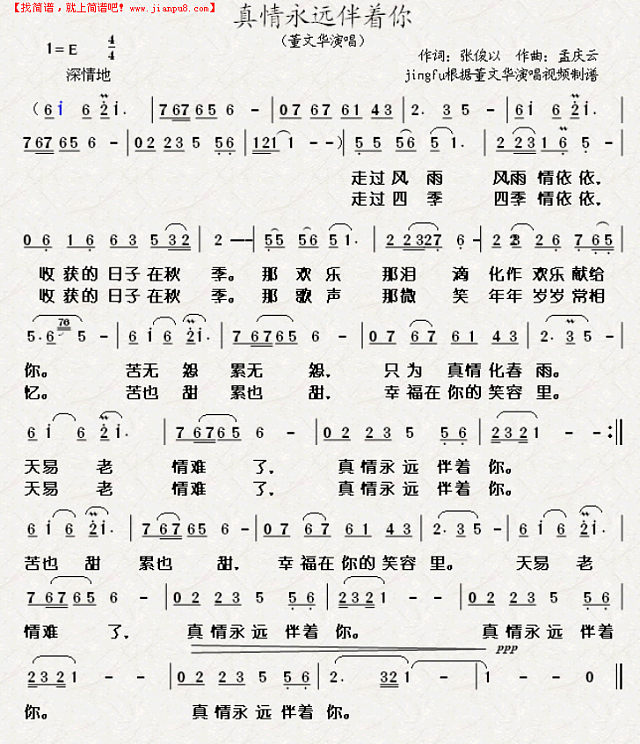 【找简谱，就上简谱吧！www.jianpu8.com】
真情永远伴着你
（董文华演唱）
1=E 4/4
作词：张俊以 作曲：孟庆云
深情地
jingfu根据董文华演唱视频制谱
（6 i 6 2 i. | 7 67 65 6 - | 0 7 67 61 43 | 2. 35 - | 6 i 6 2 i.
767 65 6 - | 0 2 23 5 56 | 121 1 - -）| 5 5 56 5 1. | 2 23 16 5 -
走过风雨 风雨情依依，
走过四季 四季情依依，
0 6 1 6 63 5 32 | 2 -- - | 55 56 51. | 2 2327 6 - | 2 23 26 7 65
收获的日子在秋季。那欢乐 那泪滴化作欢乐献给
收获的日子在秋季。那歌声 那微笑年年岁岁常相
5. 6 76 5 - | 6 i 6 2 i. | 7 6765 6 - | 0 7 67 61 43 | 2. 35 -
你。 苦无怨 累无怨， 只为真情化春雨。
忆。 苦也甜 累也甜， 幸福在你的笑容里。
6 i 6 2 i. | 7 6765 6 - | 0 2 23 5 56 | 2321 - - :||
天易老 情难了， 真情永远伴着你。
天易老 情难了， 真情永远伴着你。
6 i 6 2 i. | 7 67 65 6 - | 0 7 67 61 43 | 2. 35 - | 6 i 6 2 i.
苦也甜 累也甜， 幸福在你的笑容里。 天易老
7 6765 6 - | 0 2 23 5 56 | 2321 - - | 0 2 23 5 56
情难了， 真情永远伴着你。 真情永远伴着
ppp
2321 - - | 0 2 23 5 56 | 2. 321 | 1 - - 0 ||
你。 真情永远伴着你。